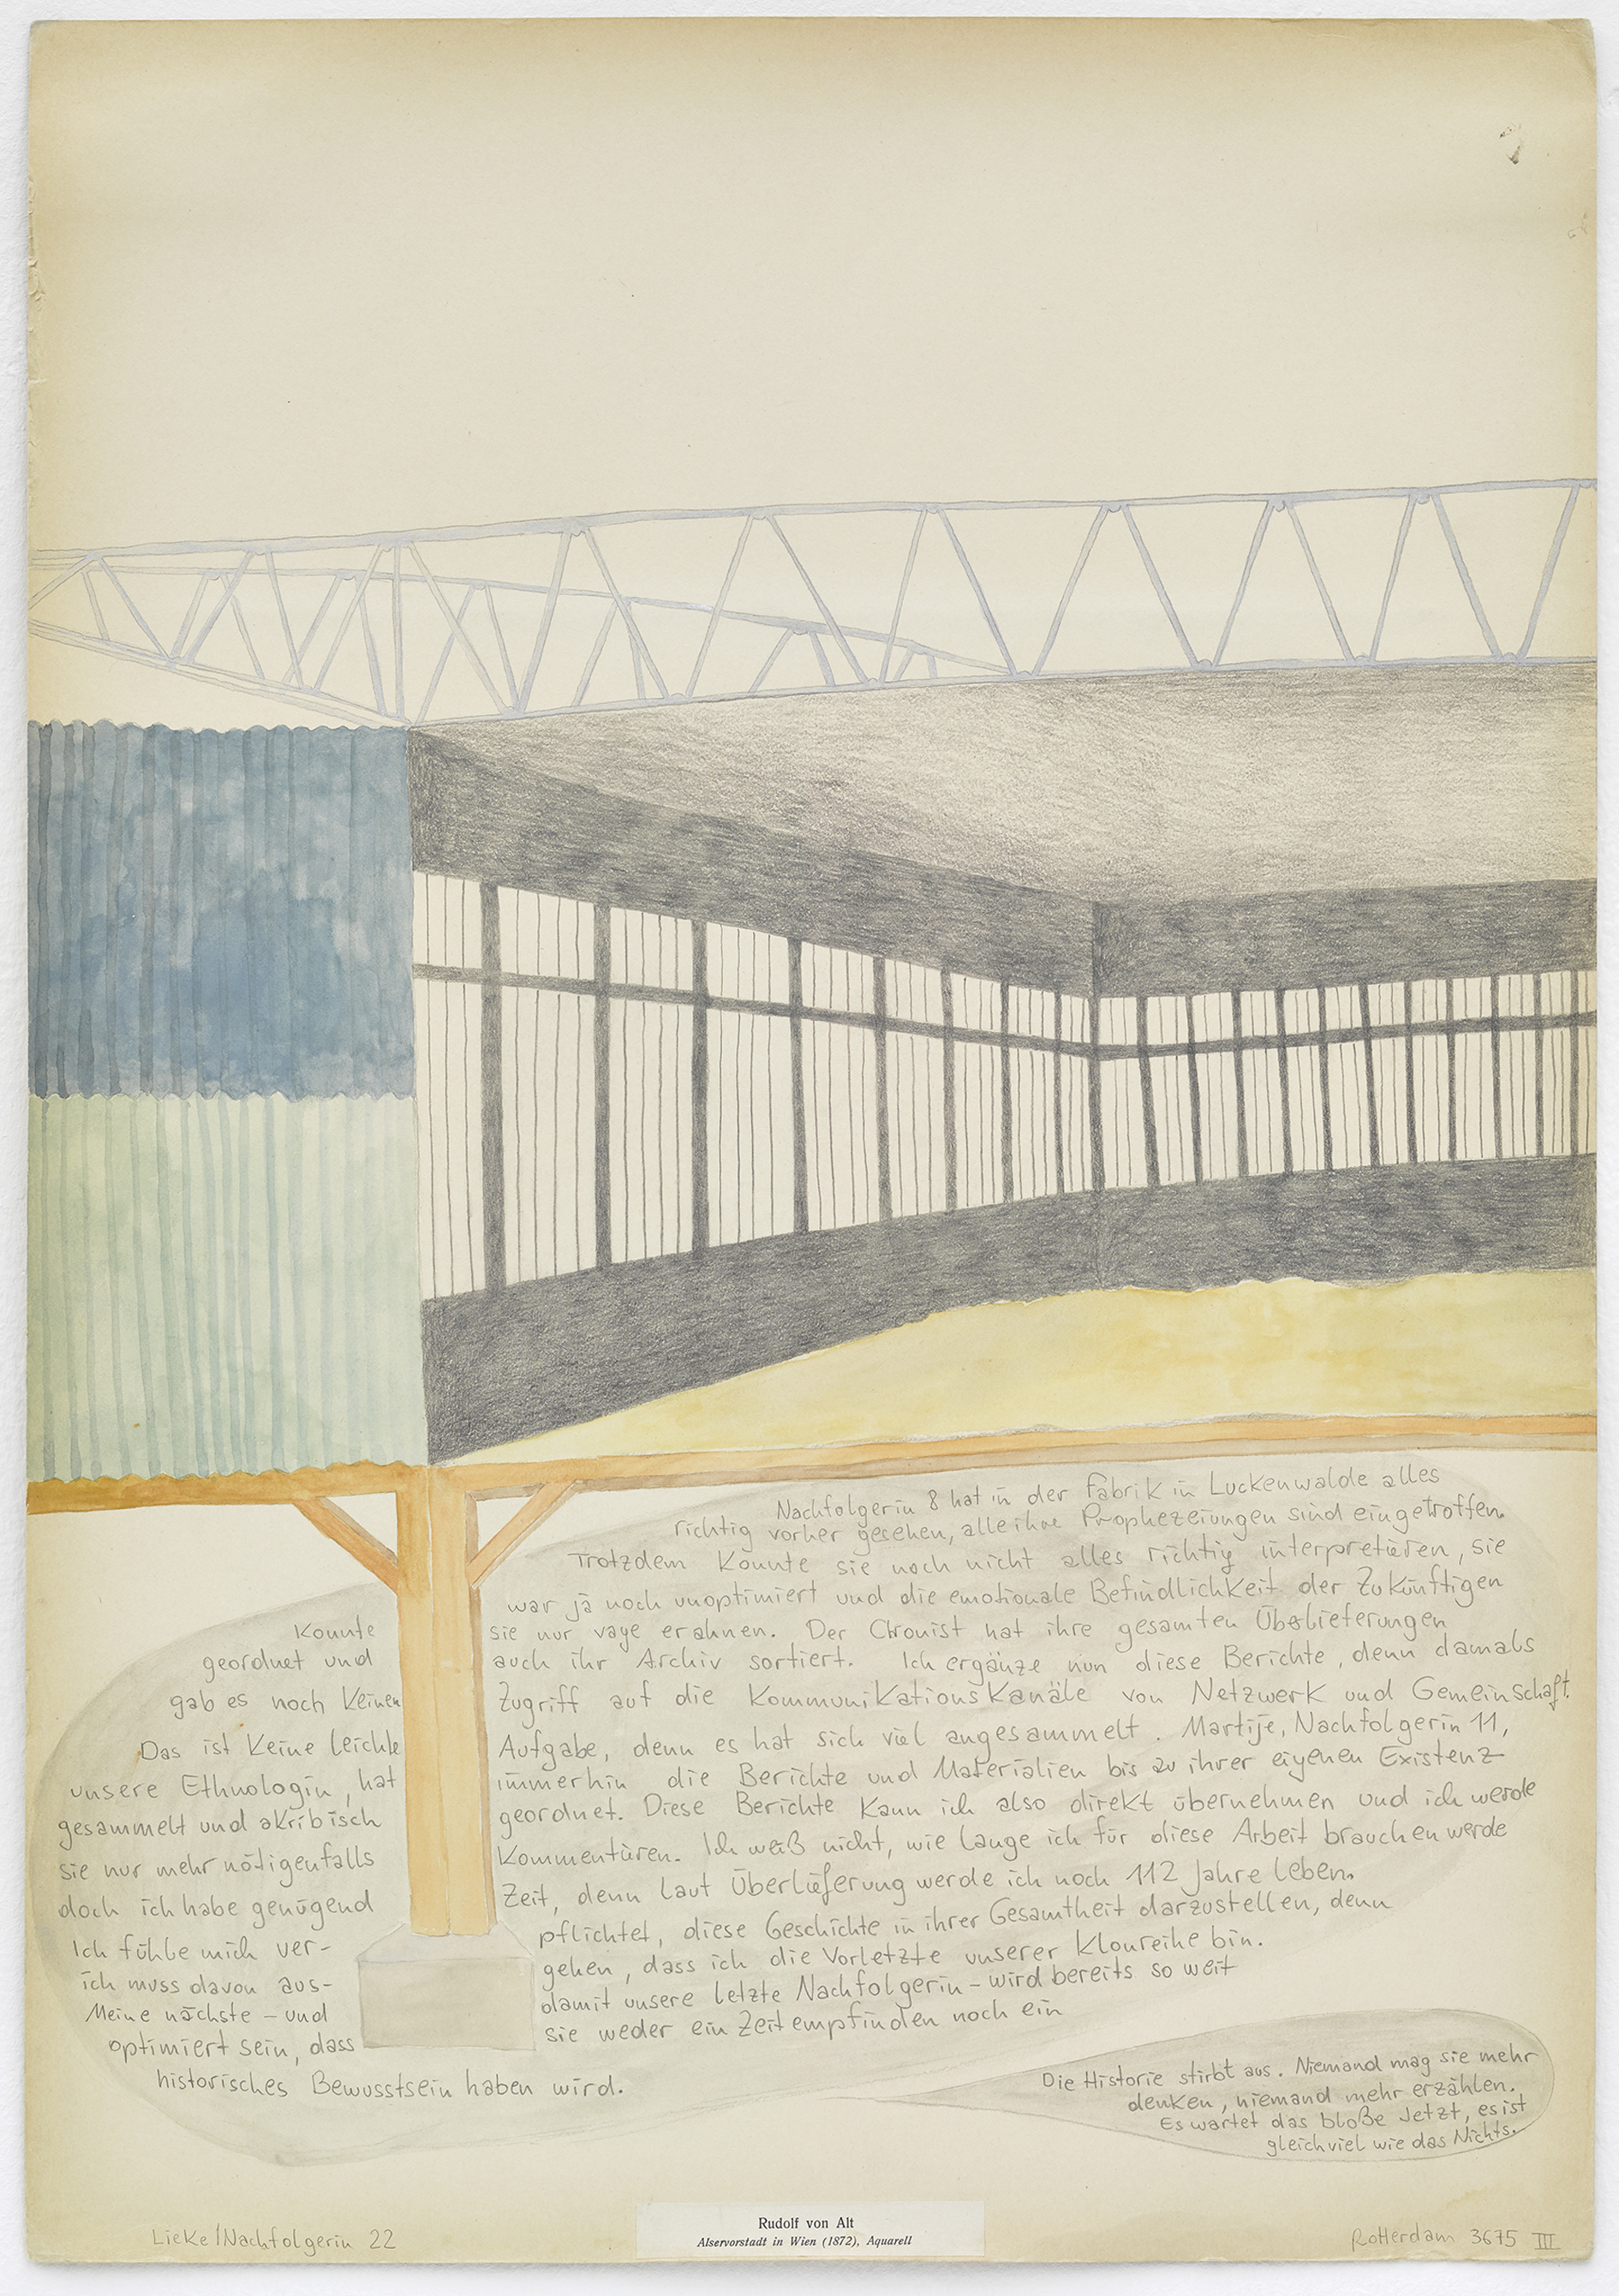 Nachfolgerin 8 hat in der Fabrik in Luckenwalde alles
richtig vorher gesehen, alle ihre Prophezeiungen sind eingetroffen.
Trotzdem konnte sie noch nicht alles richtig interpretieren, sie
war ja noch unoptimiert und die emotionale Befindlichkeit der Zukünftigen
konnte sie nur vage erahnen. Der Chronist hat ihre gesamten Überlieferungen
geordnet und auch ihr Archiv sortiert. Ich ergänze nun diese Berichte, denn damals
gab es noch keinen Zugriff auf die Kommunikationskanäle von Netzwerk und Gemeinschaft.
Das ist keine leichte Aufgabe, denn es hat sich viel angesammelt. Martije, Nachfolgerin 11,
unsere Ethnologin, hat immerhin die Berichte und Materialien bis zu ihrer eigenen Existenz
gesammelt und akribisch geordnet. Diese Berichte kann ich also direkt übernehmen und ich werde
sie nur mehr nötigenfalls kommentieren. Ich weiß nicht, wie lange ich für diese Arbeit brauchen werde
doch ich habe genügend Zeit, denn laut Überlieferung werde ich noch 112 Jahre leben.
Ich fühle mich ver- pflichtet, diese Geschichte in ihrer Gesamtheit darzustellen, denn
ich muss davon aus- gehen, dass ich die Vorletzte unserer Klonreihe bin.
Meine nächste – und damit unsere letzte Nachfolgerin – wird bereits so weit
optimiert sein, dass sie weder ein Zeitempfinden noch ein
historisches Bewusstsein haben wird.
Die Historie stirbt aus. Niemand mag sie mehr
denken, niemand mehr erzählen.
Es wartet das bloße Jetzt, es ist
gleichviel wie das Nichts.
Lieke/Nachfolgerin 22
Rudolf von Alt
Alservorstadt in Wien (1872), Aquarell
Rotterdam 3675 III